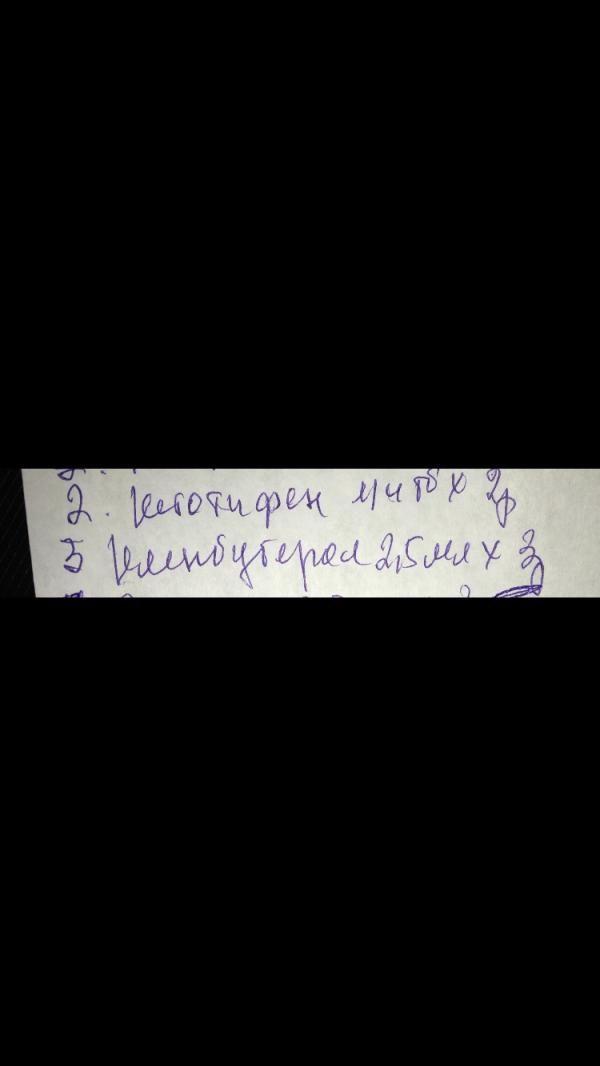 2. Кетотифен 1/4 тб х 2р
5 Кленбутерол 2,5мл х 3